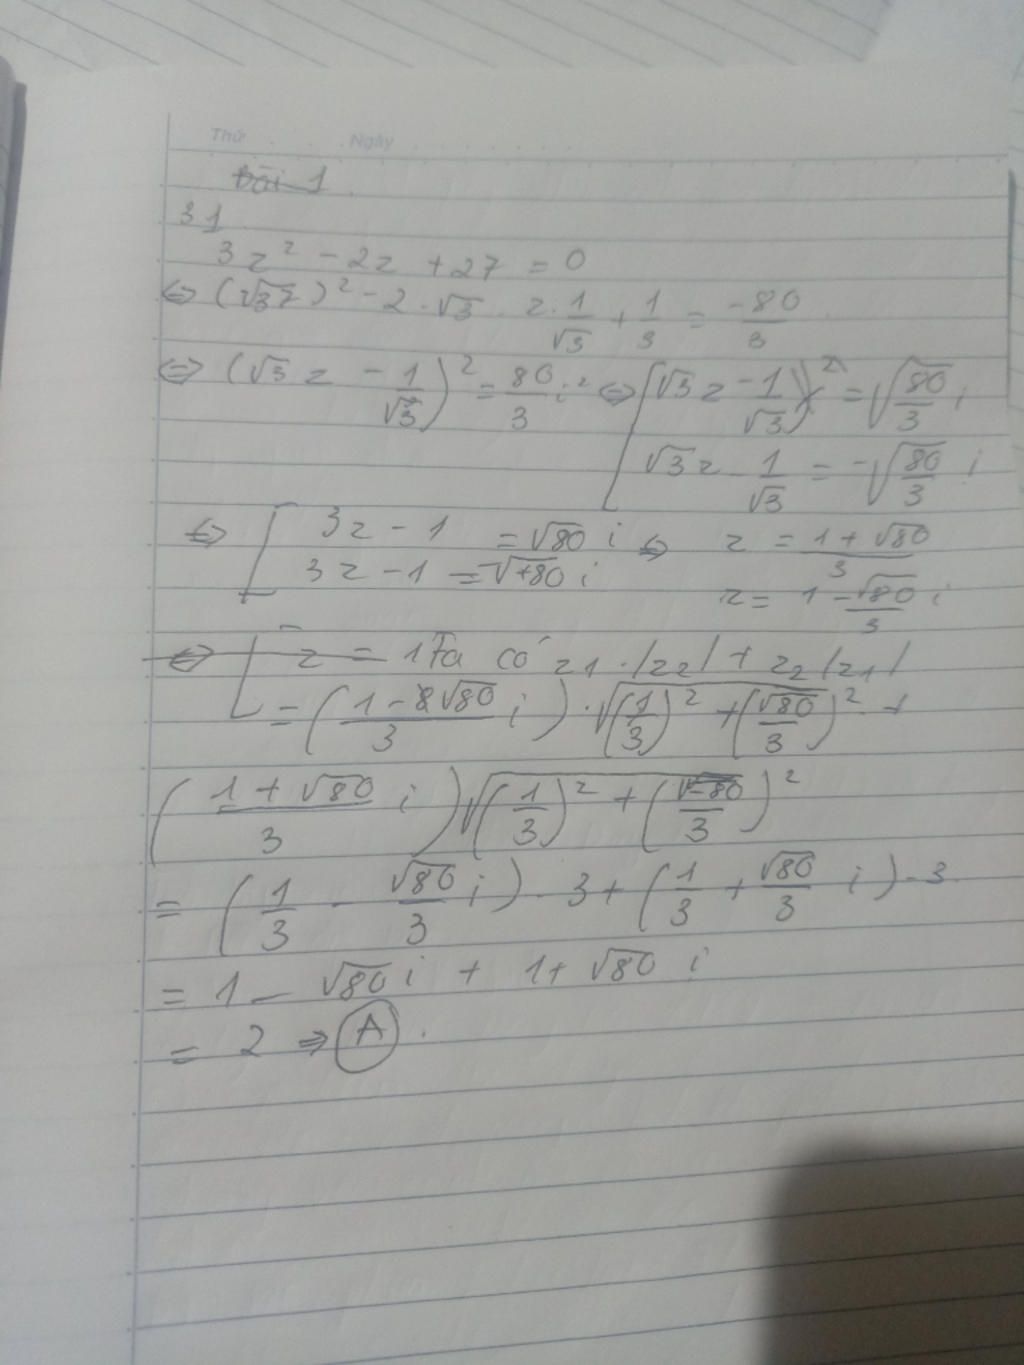 Thứ Ngày
bài 1
31
3z² - 2z + 27 = 0
⇔ (√3z)² - 2 . √3 . z . 1/√3 + 1/3 = -80/3
⇔ (√3 z - 1/√3)² = 80/3 i² ⇔ [ √3 z - 1/√3 = √(80/3) i
√3 z - 1/√3 = -√(80/3) i
⇔ [ 3z - 1 = √80 i ⇔ z = (1 + √80)/3
3z - 1 = -√80 i z = 1 - √80/3 i
⇔ [ z = 1 Ta có z1 . |z2| + z2 |z1|
= ((1 - 8√80)/3 i) . √((1/3)² + (√80/3)²) +
((1 + √80)/3 i) √((1/3)² + (√-80/3)²)
= (1/3 - √80/3 i) . 3 + (1/3 + √80/3 i) . 3
= 1 - √80 i + 1 + √80 i
= 2 ⇒ A .